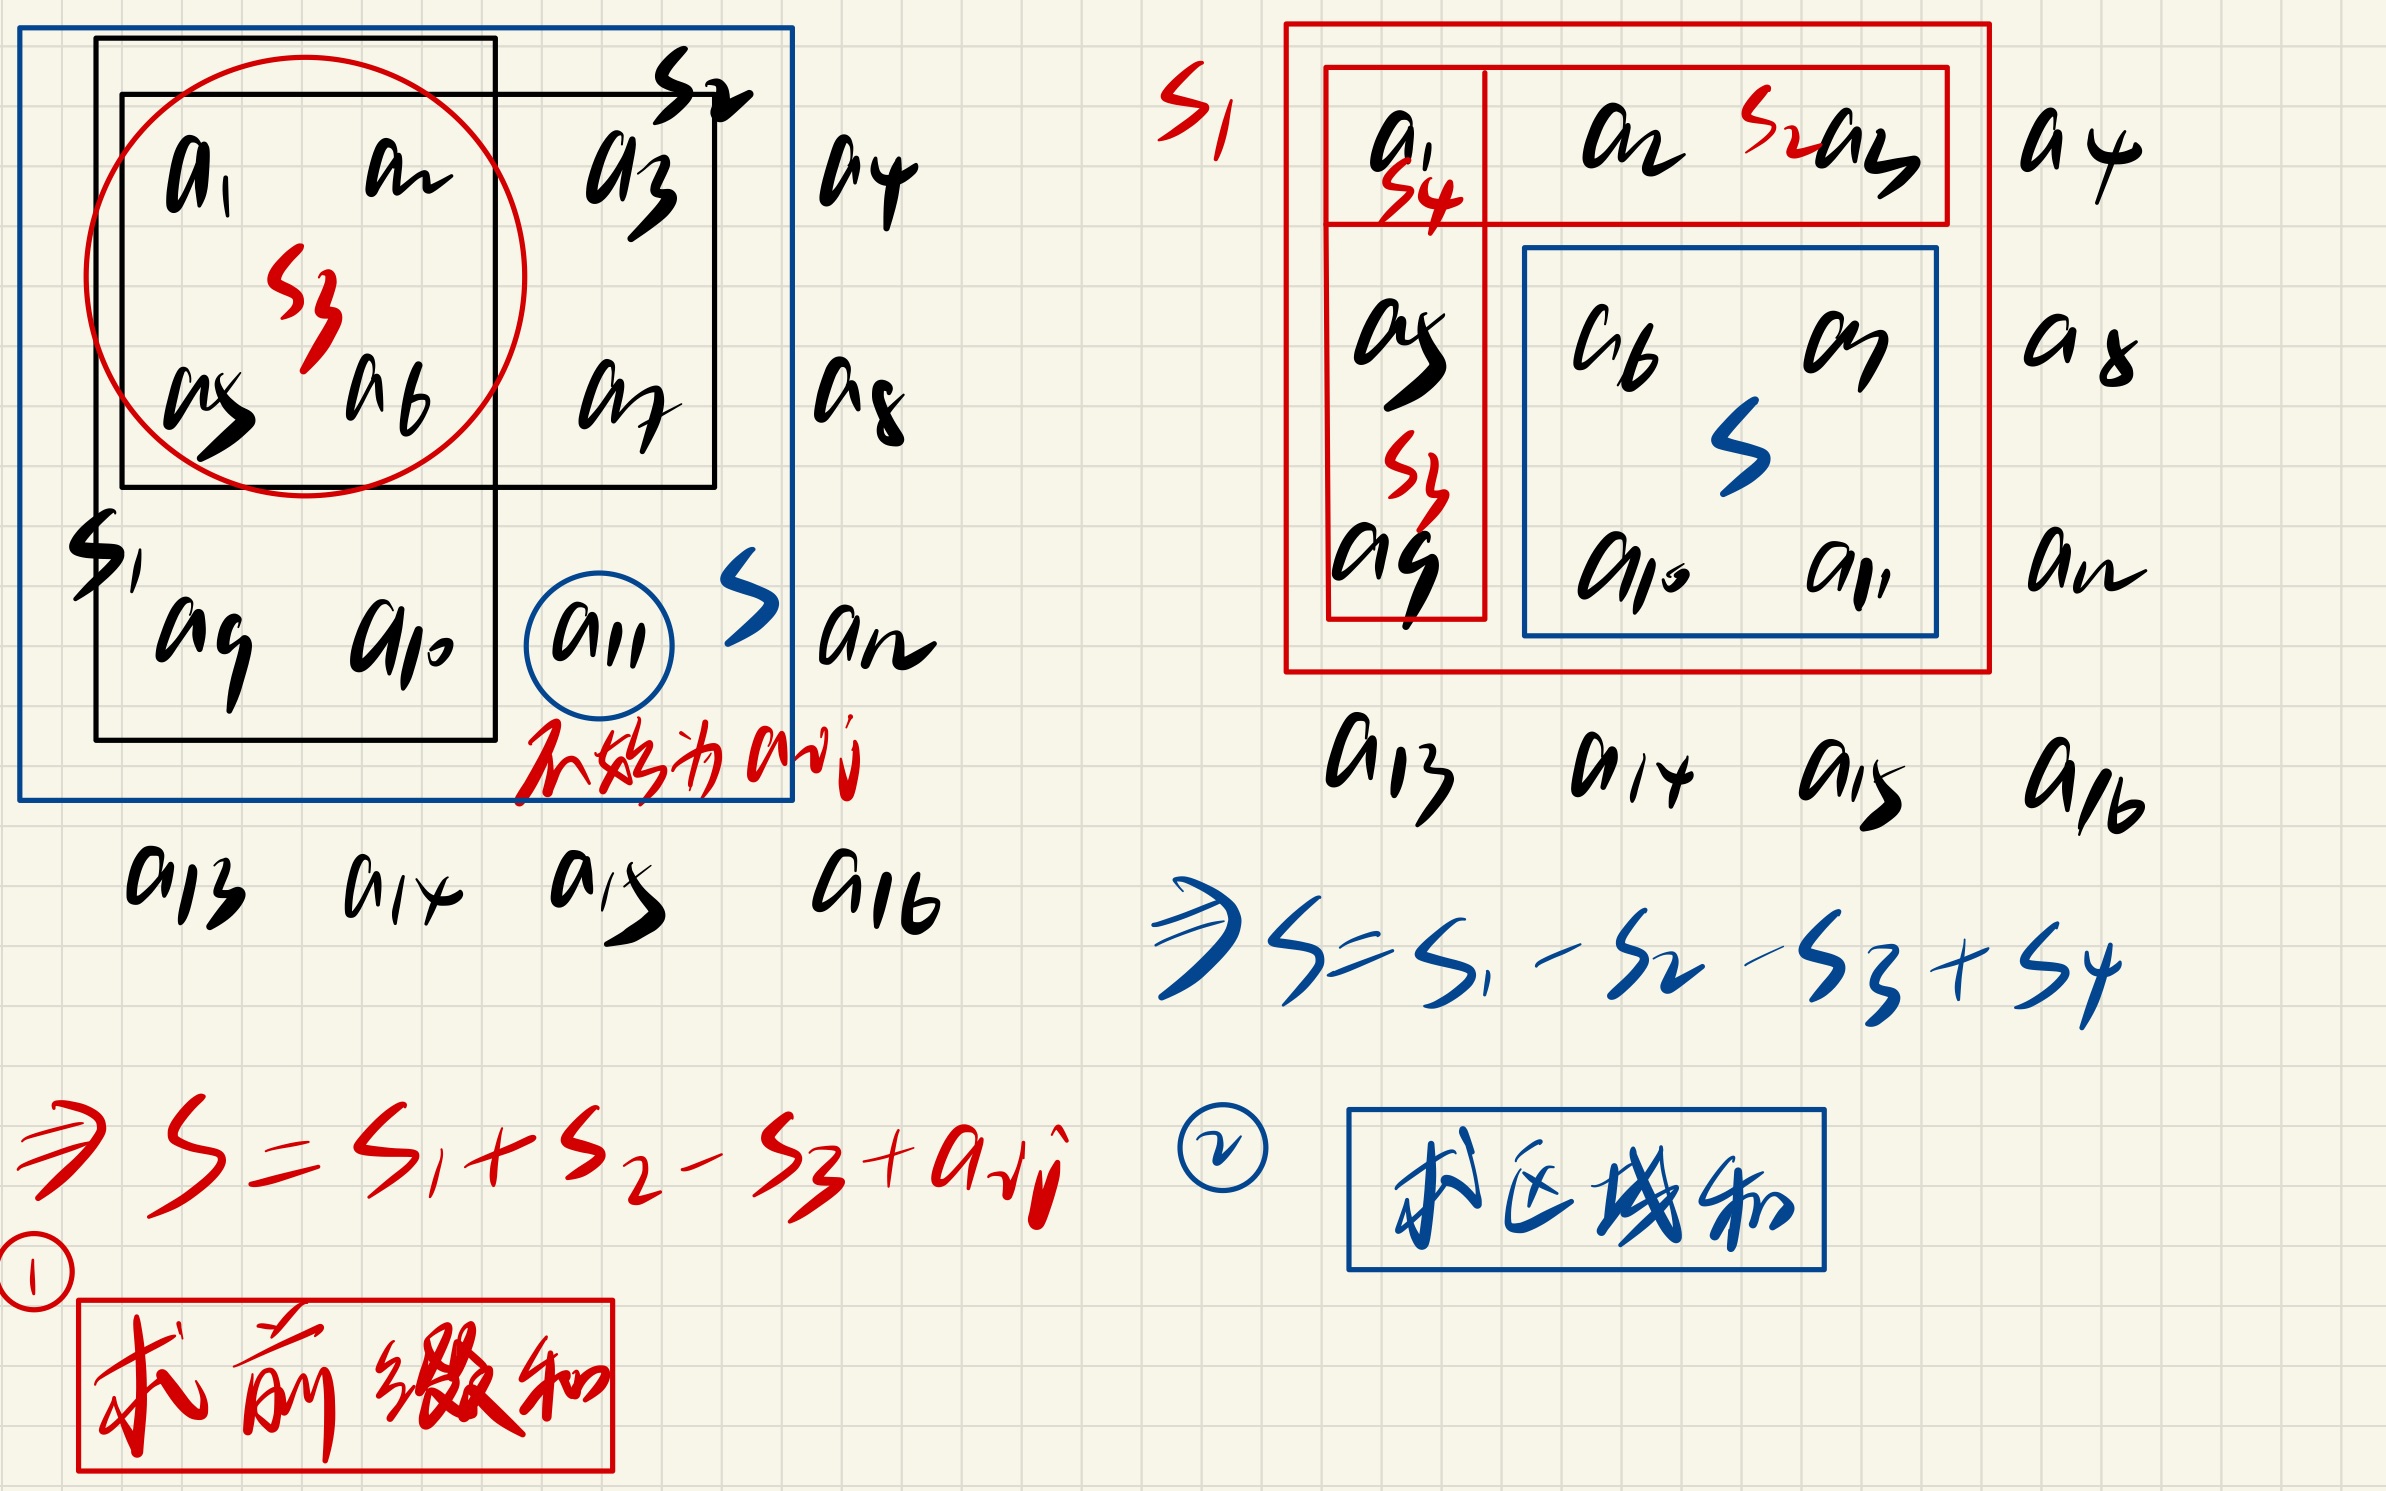 S2
a1 a2 a3 a4
S3
a5 a6 a7 a8
S1
S
a9 a10 a11 a12
aij
a13 a14 a15 a16
⇒ S = S1 + S2 - S3 + aij
① 求前缀和
S1
a1 a2 S2 a3 a4
S4
a5 a6 a7 a8
S
S3
a9 a10 a11 a12
a13 a14 a15 a16
⇒ S = S1 - S2 - S3 + S4
② 求区域和